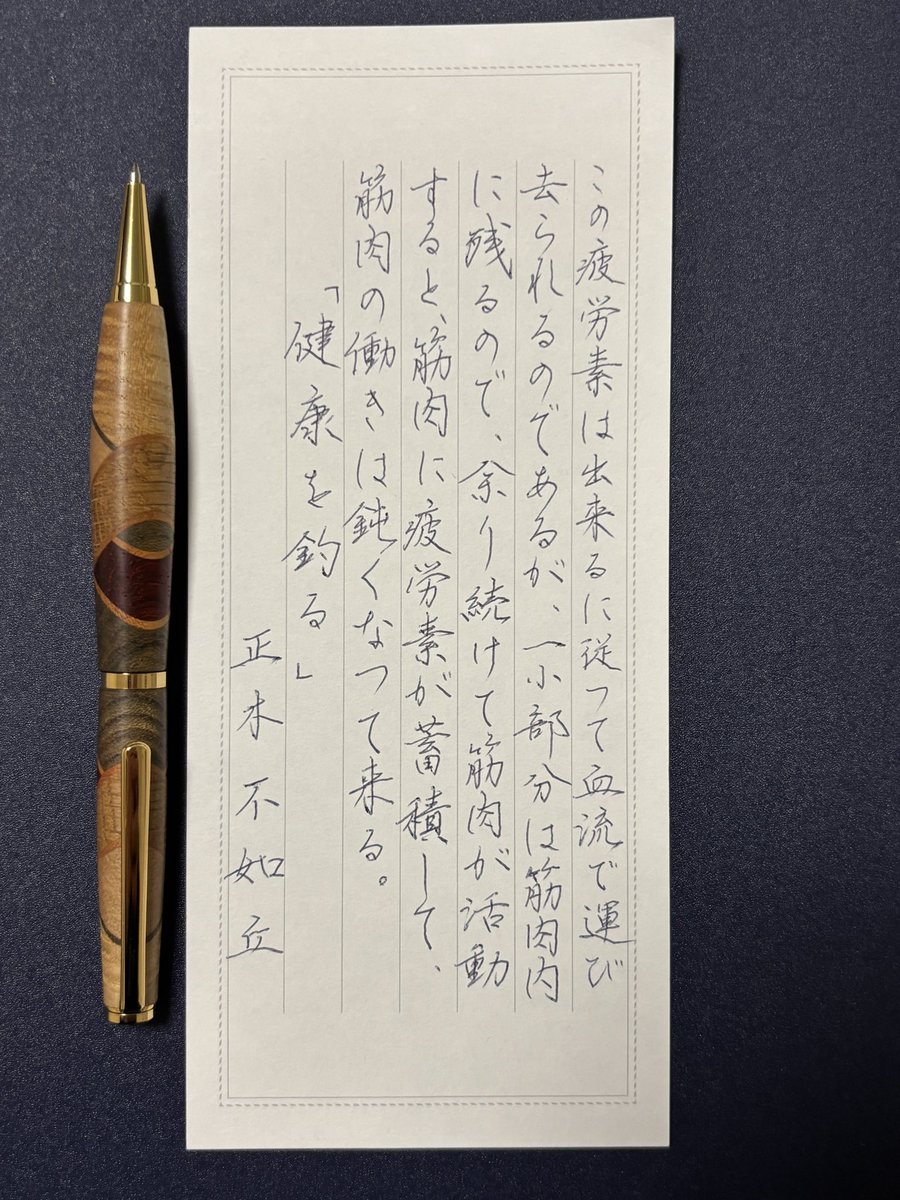 この疲労素は出来るに従つて血流で運び
去られるのであるが、一小部分は筋肉内
に残るので、余り続けて筋肉が活動
すると、筋肉に疲労素が蓄積して、
筋肉の働きは鈍くなつて来る。
「健康を釣る」
正木不如丘